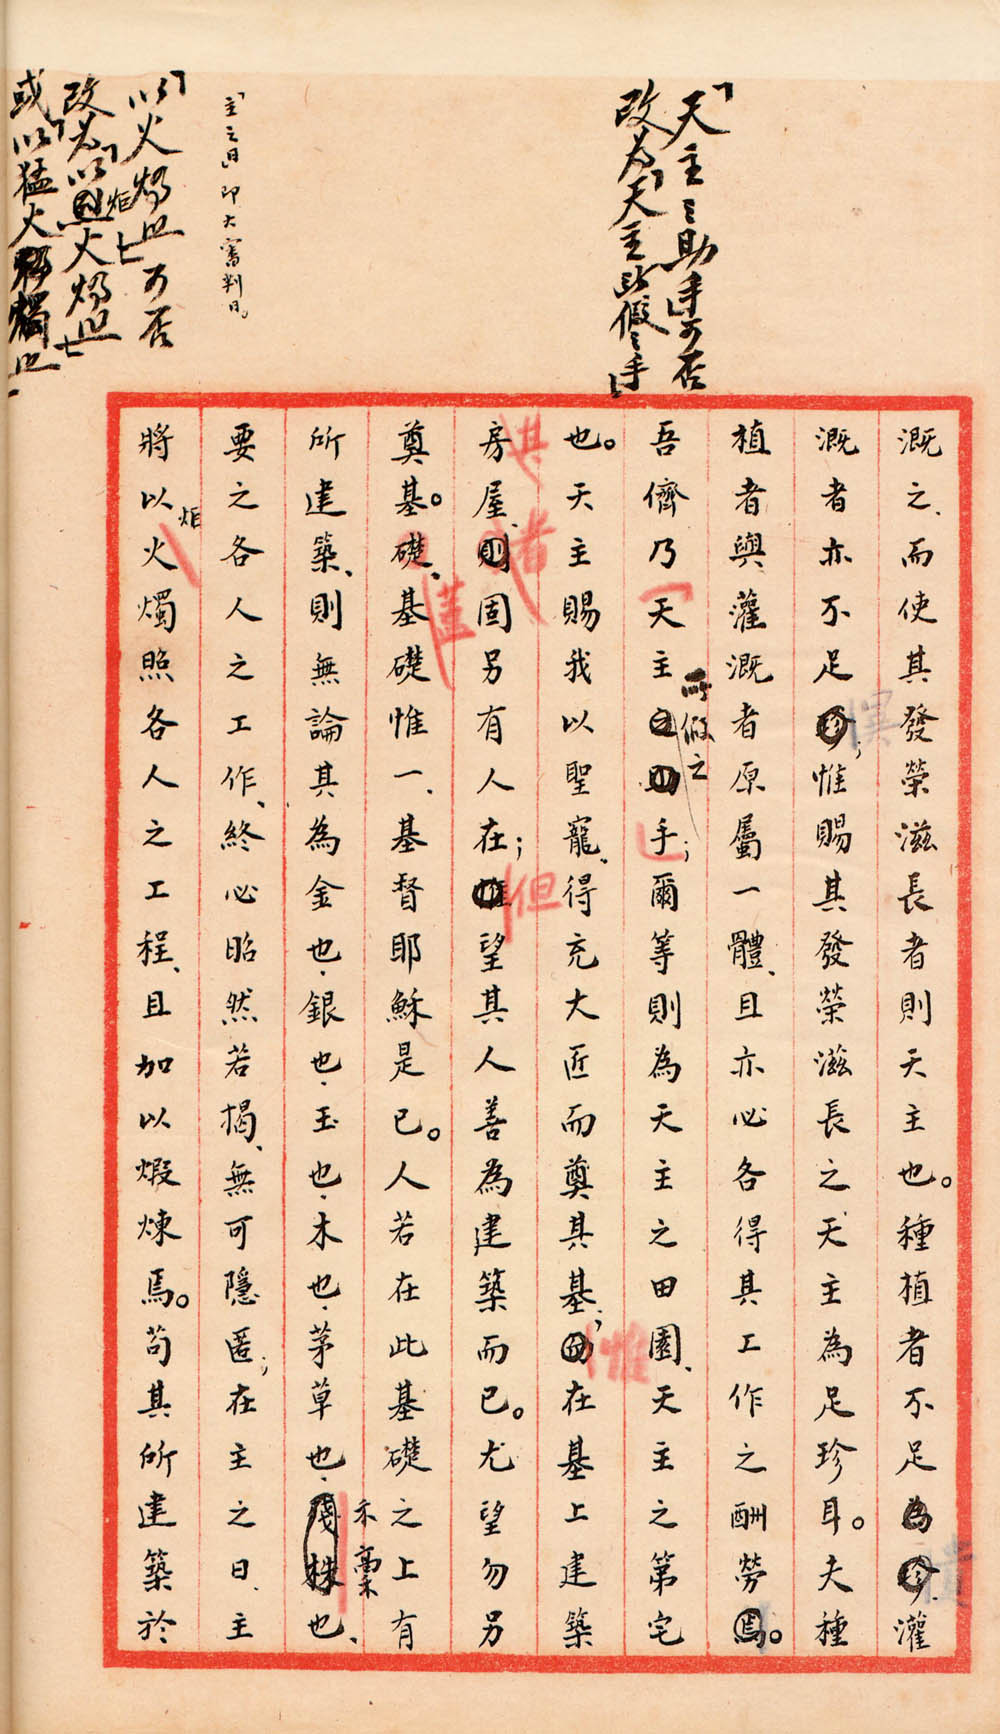 「天主之助手」可否
改為「天主所假之手」
「主之日」即大審判日。
「以火燭照」可否
改為「以炬火燭照」
或「以猛火燭照」
溉之、而使其發榮滋長者則天主也。種植者不足為珍、灌
溉者亦不足珍；惟賜其發榮滋長之天主為足珍耳。夫種
植者與灌溉者原屬一體、且亦必各得其工作之酬勞焉。
吾儕乃天主之助手；爾等則為天主之田園、天主之第宅
所假之
也。天主賜我以聖寵、得充大匠而奠其基；而在基上建築
惟
房屋、則固另有人在；惟望其人善為建築而已。尤望勿另
其
者
但
奠基。礎、基礎惟一、基督耶穌是已。人若在此基礎之上有
蓋
所建築、則無論其為金也、銀也、玉也、木也、茅草也、殘株也、
禾
高禾
要之各人之工作、終必昭然若揭、無可隱匿；在主之日、主
將以火燭照各人之工程、且加以煅煉焉。苟其所建築於
炬